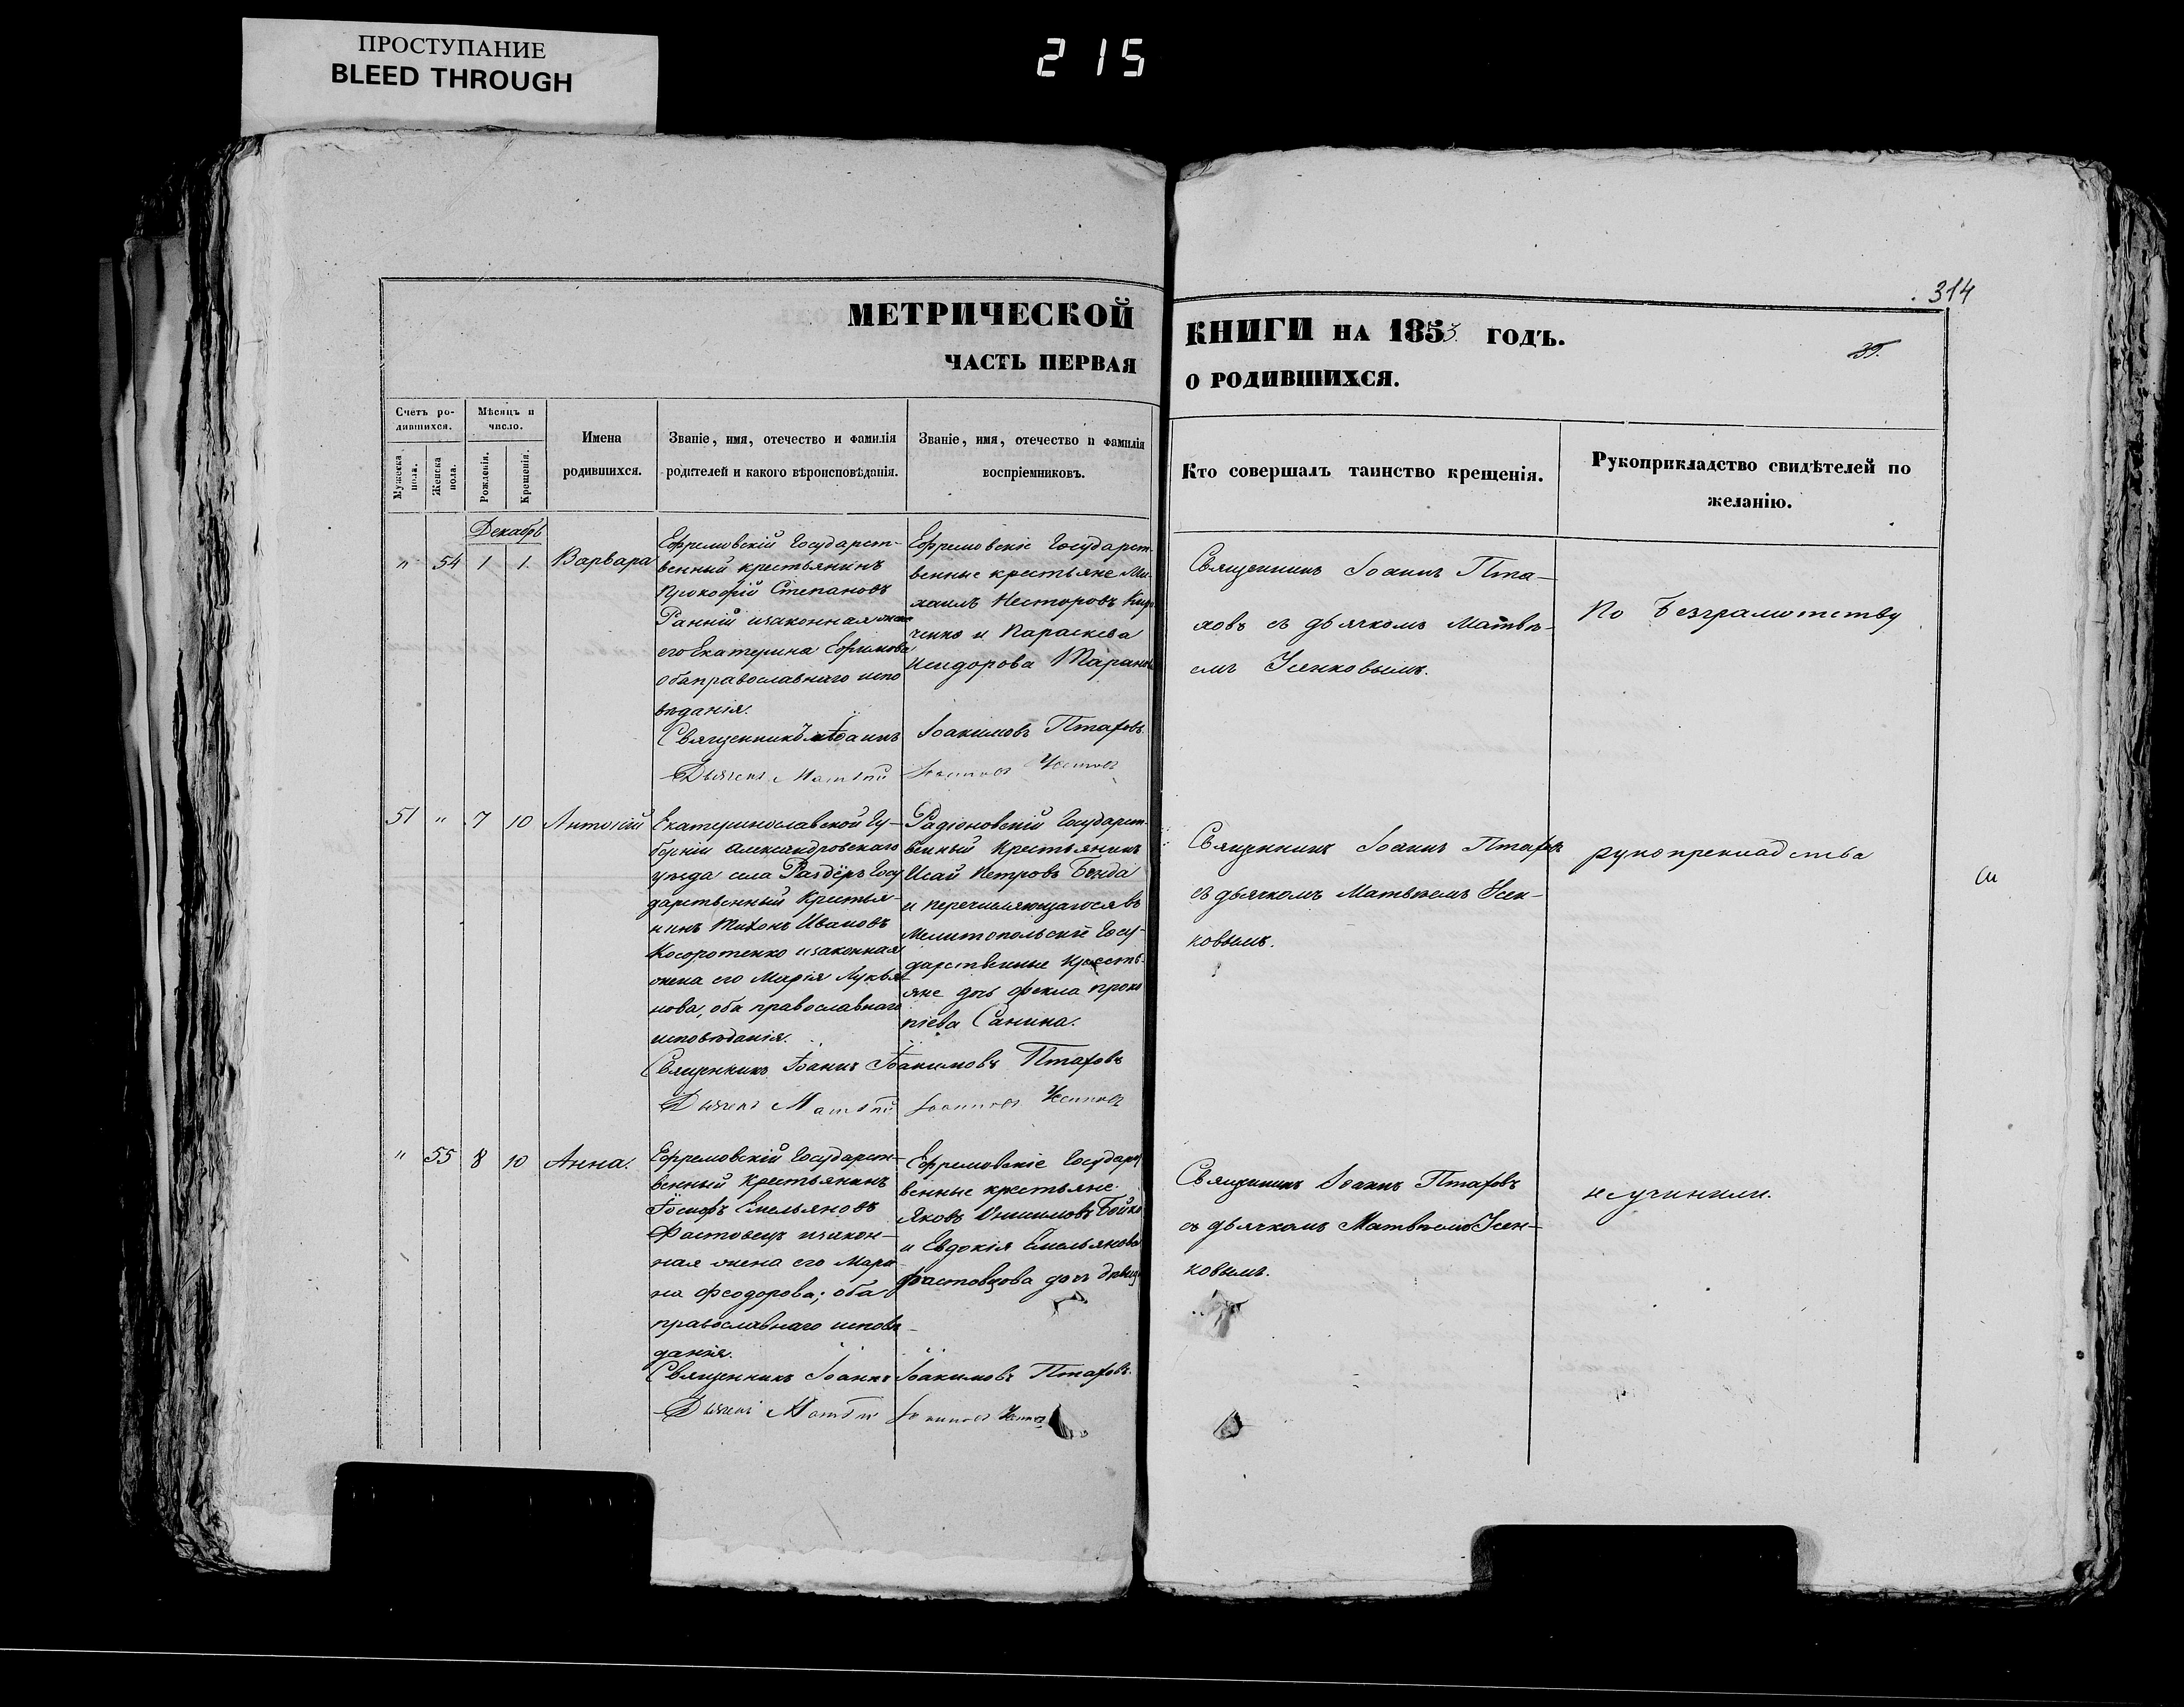 ПРОСТУПАНИЕ
BLEED THROUGH
215
314
МЕТРИЧЕСКОЙ
КНИГИ НА 1853 ГОДЪ.
35.
ЧАСТЬ ПЕРВАЯ
О РОДИВШИХСЯ.
Счетъ ро-
дившихся.
Мужеска
пола.
Женска
пола.
Мѣсяцъ и
число.
Рожденія.
Крещенія.
Имена
родившихся.
Званіе, имя, отечество и фамилія
родителей и какого вѣроисповѣданія.
Званіе, имя, отечество и фамилія
воспріемниковъ.
Кто совершалъ таинство крещенія.
Рукоприкладство свидѣтелей по
желанію.
Декабрь
" 54 1 1. Варвара
Ефремовскій Государст-
венный крестьянинъ
Прокофій Степановъ
Ранній изаконная жена
его Екатерина Ефимова
оба православнаго испо
вѣданія.
Ефремовскіе Государст-
венные крестьяне Ми-
хаилъ Несторовъ
ченко и Параскева
Исидорова Таранова
Священникъ Іоаннъ Іоакимовъ Птаховъ.
Дьячекъ Матѳій Іоанновъ Усенковъ
Священникъ Іоаннъ Пта-
ховъ съ дьячкомъ Матвѣ-
емъ Усенковымъ.
По безграмотству
51 " 7 10 Антоній
Екатеринославской Гу-
берніи Александровскаго
уѣзда села Раздёръ Госу
дарственный Крестья-
нинъ Тихонъ Ивановъ
Косоротенко изаконная
жена его Марія Лукья
нова, оба православнаго
исповѣданія.
Радіоновскій Государст-
венный Крестьянинъ
Исай Петровъ Бонда
и перечисляющагося въ
Мелитопольскіе Госу-
дарственные Кресть-
яне дочь Ѳекла Проко
піева Санина.
Священникъ Іоаннъ Іоакимовъ Птаховъ
Дьячекъ Матѳій Іоанновъ Усенковъ
Священникъ Іоаннъ Птаховъ
съ дьячкомъ Матвѣемъ Усен-
ковымъ.
рукоприкладства
" 55 8 10 Анна.
Ефремовскій Государст-
венный Крестьянинъ
Іосифъ Емельяновъ
Фастовецъ изакон-
ная жена его Мари-
на Феодорова; оба
православнаго исповѣ-
данія.
Ефремовскіе Государст
венные крестьяне
Яковъ Онисимовъ Бойко
и Евдокія Емельянова
Фастовцова дочь дѣвица
Священникъ Іоаннъ Іоакимовъ Птаховъ.
Дьячекъ Матѳій Іоанновъ
Священникъ Іоаннъ Птаховъ
съ дьячкомъ Матвѣемъ Усен-
ковымъ.
не учинили.